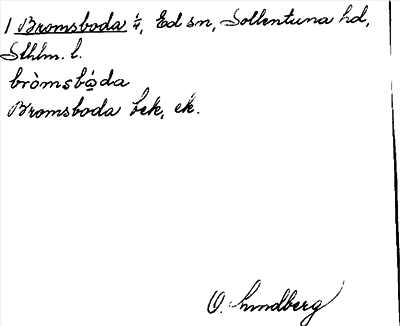 1 Bromsboda ¼, Ed sn, Sollentuna hd,
Sthlm. l.
bròmsbὼda
Bromsboda bek, ek.
O. Lundberg